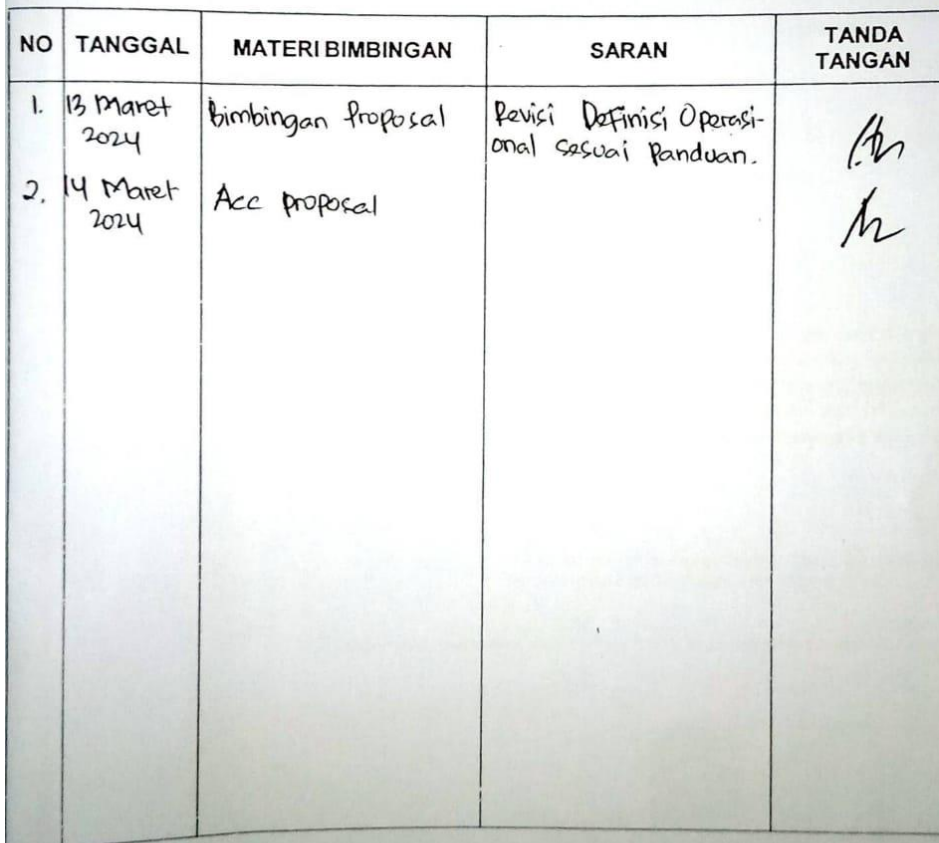 NO TANGGAL MATERI BIMBINGAN SARAN TANDA TANGAN
1. 13 Maret 2024 Bimbingan Proposal Revisi Definisi Operasi-
onal sesuai Panduan.
2. 14 Maret 2024 Acc proposal